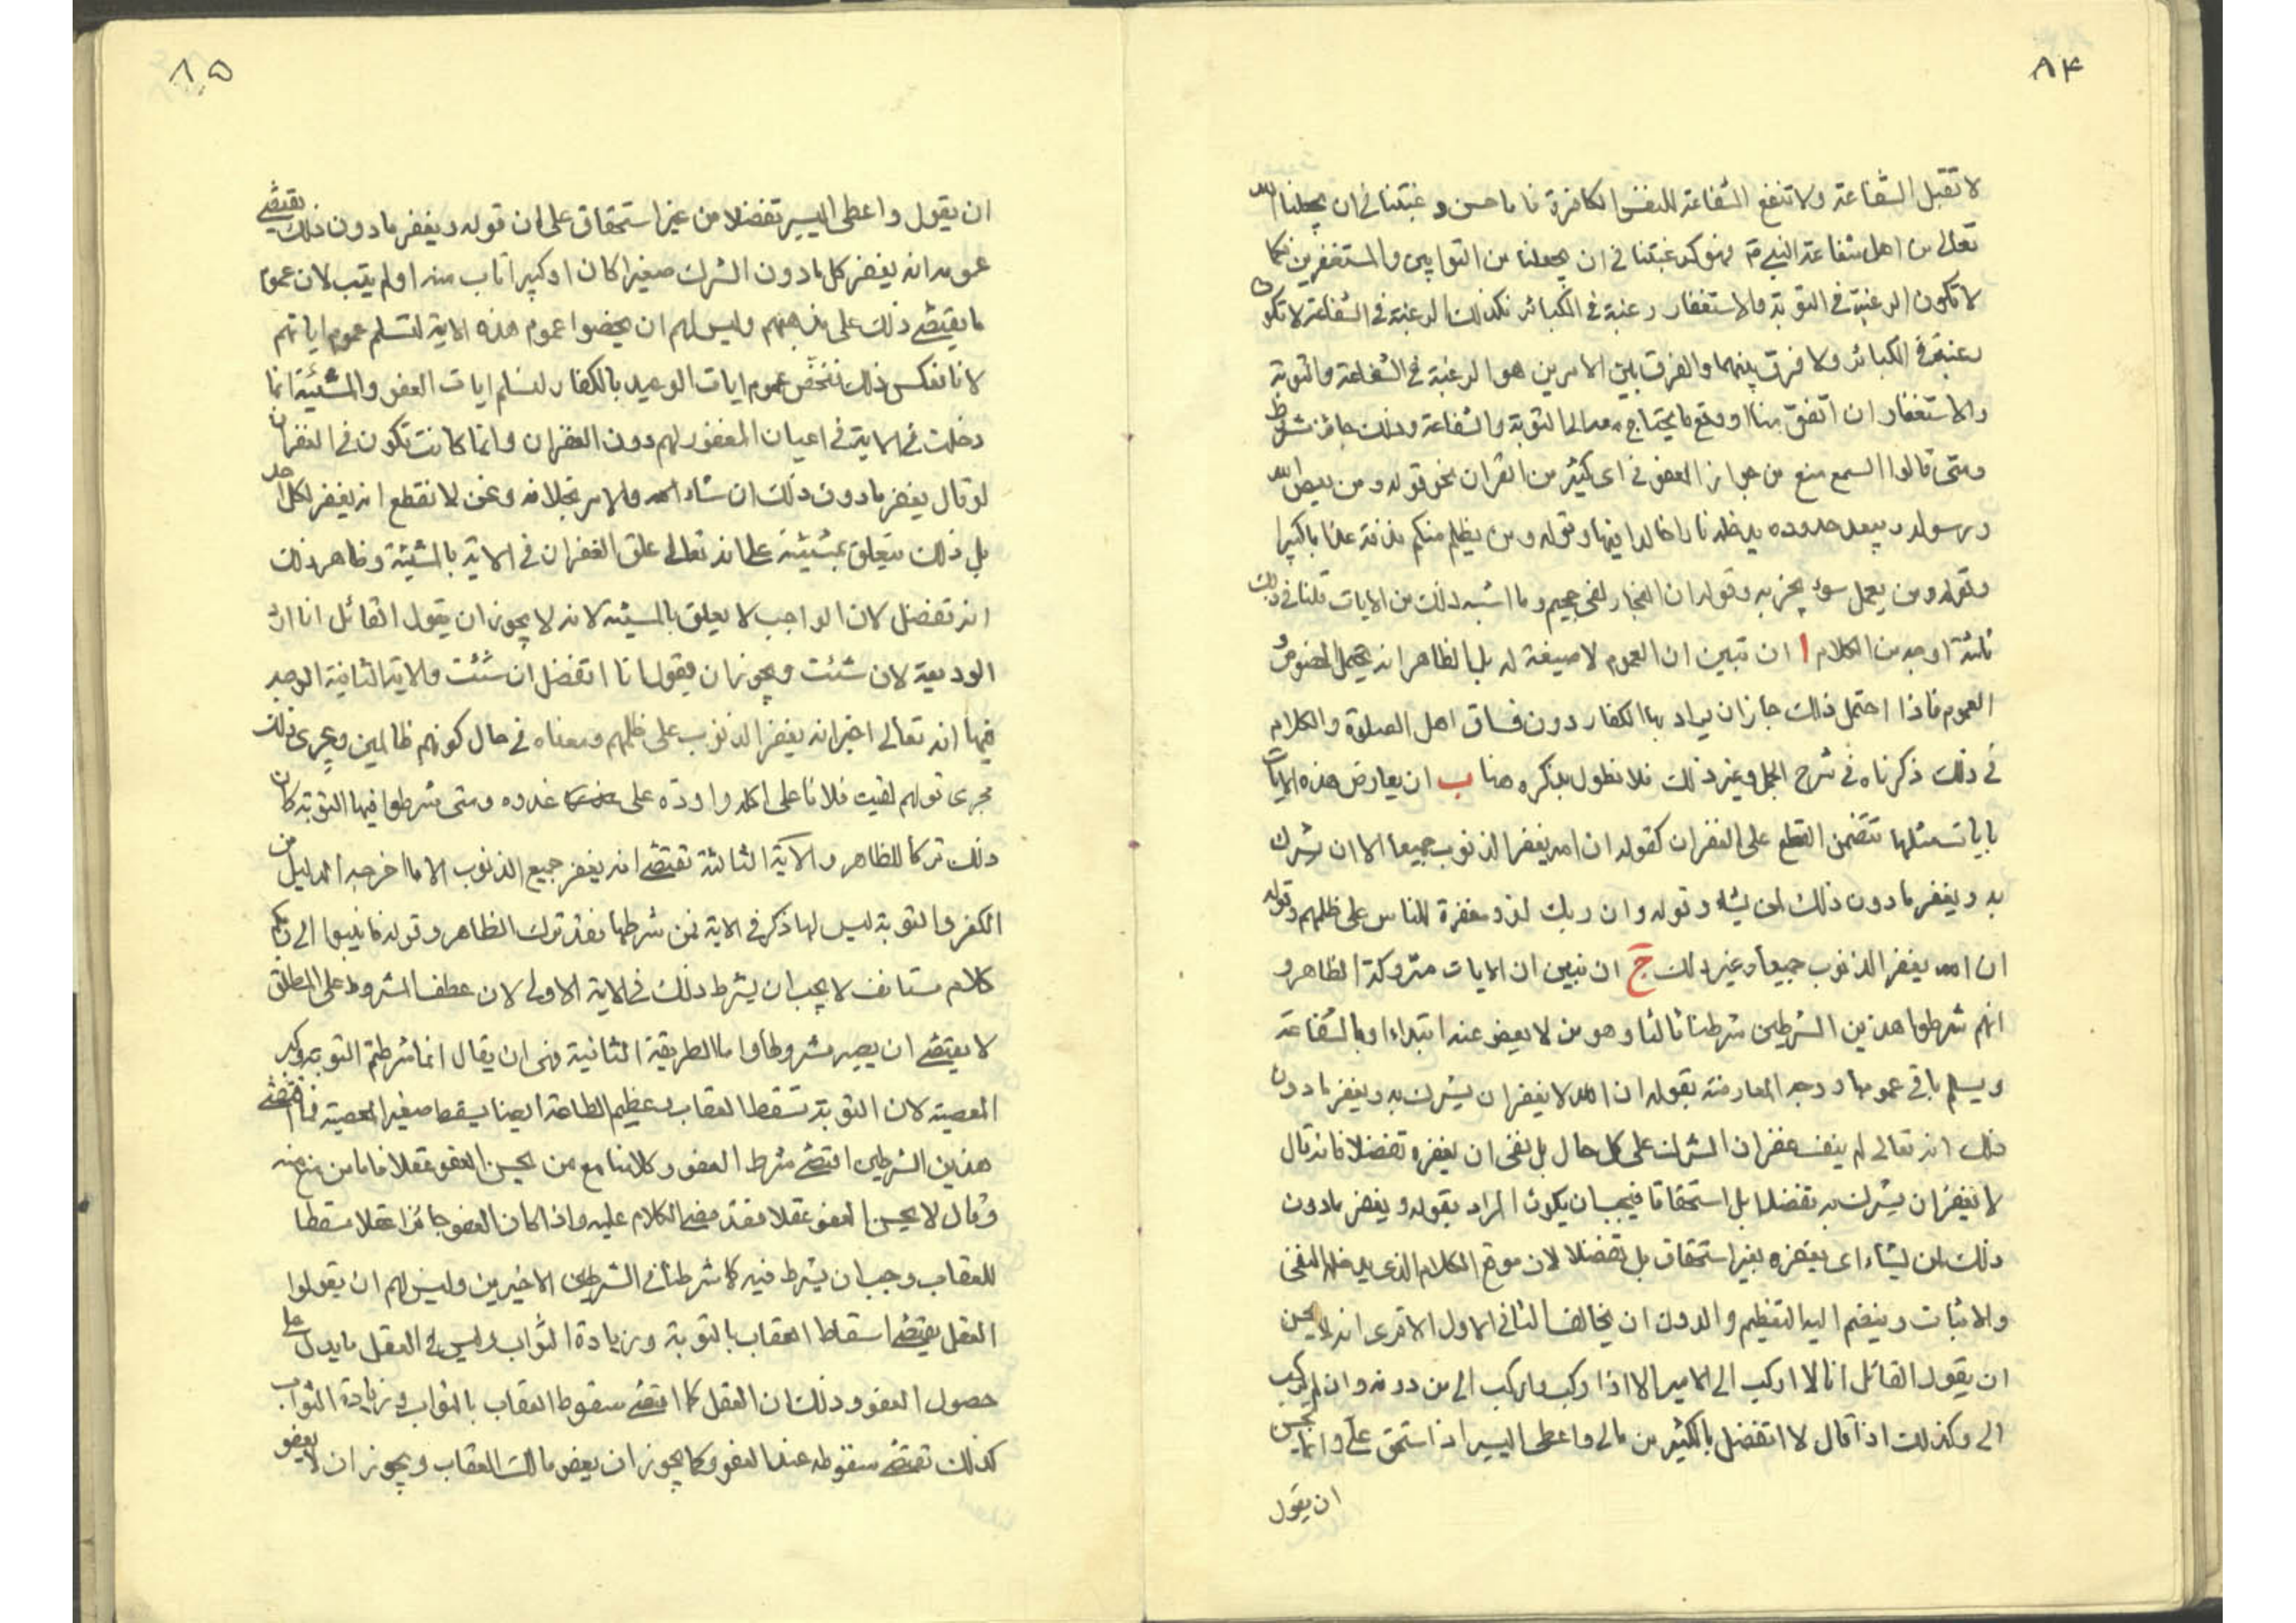 ٨۴
لا تقبل الشفاعة ولا تنفع الشفاعة للنفس الكافرة فاما حسن رغبتنا فى ان يجعلنا الله
تعالى من اهل شفاعة النبى فهو كرغبتنا فى ان يجعلنا من التوابين والمستغفرين فكما
لا تكون الرغبة فى التوبة والاستغفار رغبة فى الكبائر فكذلك الرغبة فى الشفاعة لا تكون
رغبة فى الكبائر ولا فرق بينهما والفرق بين الامرين هو الرغبة فى الشفاعة والتوبة
والاستغفار ان اتفق منا او وقع ما يحتاج معه الى التوبة والشفاعة وذلك جائز شرط
ومتى قالوا السمع منع من جواز العفو فى اى كثير من القران نحو قوله ومن يعص الله
ورسوله ويتعد حدوده يدخله نارا خالدا فيها وقوله ومن يظلم منكم نذقه عذابا كبيرا
وقوله ومن يعمل سوء يجز به وقوله ان الفجار لفى جحيم وما اشبه ذلك من الايات قلنا فى ذلك
ثلثة اوجه من الكلام ا ان نبين ان العموم لا صيغة له بل الظاهر انه يحتمل الخصوص و
العموم فاذا احتمل ذلك جاز ان يراد بها الكفار دون فساق اهل الصلوة والكلام
فى ذلك ذكرناه فى شرح الجمل وغير ذلك فلا نطول بذكره هنا ب ان يعارض هذه الايات
بايات مثلها تتضمن القطع على الغفران كقوله ان الله يغفر الذنوب جميعا الا ان يشرك
به ويغفر ما دون ذلك لمن يشاء وقوله وان ربك لذو مغفرة للناس على ظلمهم وقوله
ان الله يغفر الذنوب جميعا وغير ذلك ج ان نبين ان الايات متروكة الظاهر و
انهم شرطوا هذين الشرطين شرطنا ثالثا وهو من لا يعفو عنه ابتداء او بالشفاعة
ويسلم باقى عمومها ووجه المعارضة بقوله ان الله لا يغفر ان يشرك به ويغفر ما دون
ذلك انه تعالى لم ينف غفران الشرك على كل حال بل نفى ان يغفره تفضلا فانه قال
لا يغفر ان يشرك به تفضلا بل استحقاقا فيجب ان يكون المراد بقوله ويغفر ما دون
ذلك لمن يشاء اى يغفره بغير استحقاق بل تفضلا لان موقع الكلام الذى يدخله النفى
والاثبات وينضم اليه التعظيم والدون ان يخالف الثانى الاول الا ترى انه لا يحسن
ان يقول القائل انا لا اركب الى الامير الا اذا ركب واركب الى من دونه وان لم يركب
الى وكذلك اذا قال لا اتفضل بالكثير من مالى واعطى اليسير اذا استحق على وانما يحسن
ان يقول
٨٥
ان يقول واعطى اليسير تفضلا من غير استحقاق على ان قوله ويغفر ما دون ذلك يقتضى
عمومه انه يغفر كل ما دون الشرك صغيرا كان او كبيرا تاب منه او لم يتب لان عموم
ما يقتضى ذلك على مذهبهم وليس لهم ان يخصوا عموم هذه الاية لتسلم عموم اياتهم
لانا نعكس ذلك فنخص عموم ايات الوعيد بالكفار لتسلم ايات العفو والمشيئة انما
دخلت فى الاية فى اعيان المغفور لهم دون الغفران وانما كانت تكون فى الغفران
لو قال يغفر ما دون ذلك ان شاء الله والامر بخلافه ونحن لا نقطع انه يغفر لكل احد
بل ذلك متعلق بمشيئته على انه تعالى علق الغفران فى الاية بالمشيئة وظاهر ذلك
انه تفضل لان الواجب لا يعلق بالمشيئة لانه لا يجوز ان يقول القائل انا ارد
الوديعة لان شئت ويجوز ان يقول انا اتفضل ان شئت والاية الثانية الوجه
فيها انه تعالى اخبر انه يغفر الذنوب على ظلمهم ومعناه فى حال كونهم ظالمين ويجرى ذلك
مجرى قولهم لقيت فلانا على اكله واودّه على غدره ومتى شرطوا فيها التوبة كان
ذلك تركا للظاهر والاية الثالثة تقتضى انه يغفر جميع الذنوب الا ما اخرجه الدليل من
الكفر والتوبة ليس لها ذكر فى الاية فمن شرطها فقد ترك الظاهر وقوله فانيبوا الى ربكم
كلام مستانف لا يجب ان يشرط ذلك فى الاية الاولى لان عطف المشروط على المطلق
لا يقتضى ان يصير مشروطا واما الطريقة الثانية فهى ان يقال انما شرطتم التوبة وكبر
المعصية لان التوبة تسقط العقاب وعظيم الطاعة ايضا يسقط صغير المعصية فما اقتضى
هذين الشرطين اقتضى شرط العفو وكلامنا مع من يحسن العفو عقلا فاما من منع منه
وقال لا يحسن العفو عقلا فقد مضى الكلام عليه واذا كان العفو جائزا عقلا مسقطا
للعقاب وجب ان يشرط فيه كما شرطنا فى الشرطين الاخيرين وليس لهم ان يقولوا
العقل يقتضى اسقاط العقاب بالتوبة وزيادة الثواب وليس فى العقل ما يدل على
حصول العفو وذلك ان العقل كما اقتضى سقوط العقاب بالثواب وزيادة الثواب
كذلك تقتضى سقوطه عند العفو وكما يجوز ان يعفو مالك العقاب ويجوز ان لا يعفو